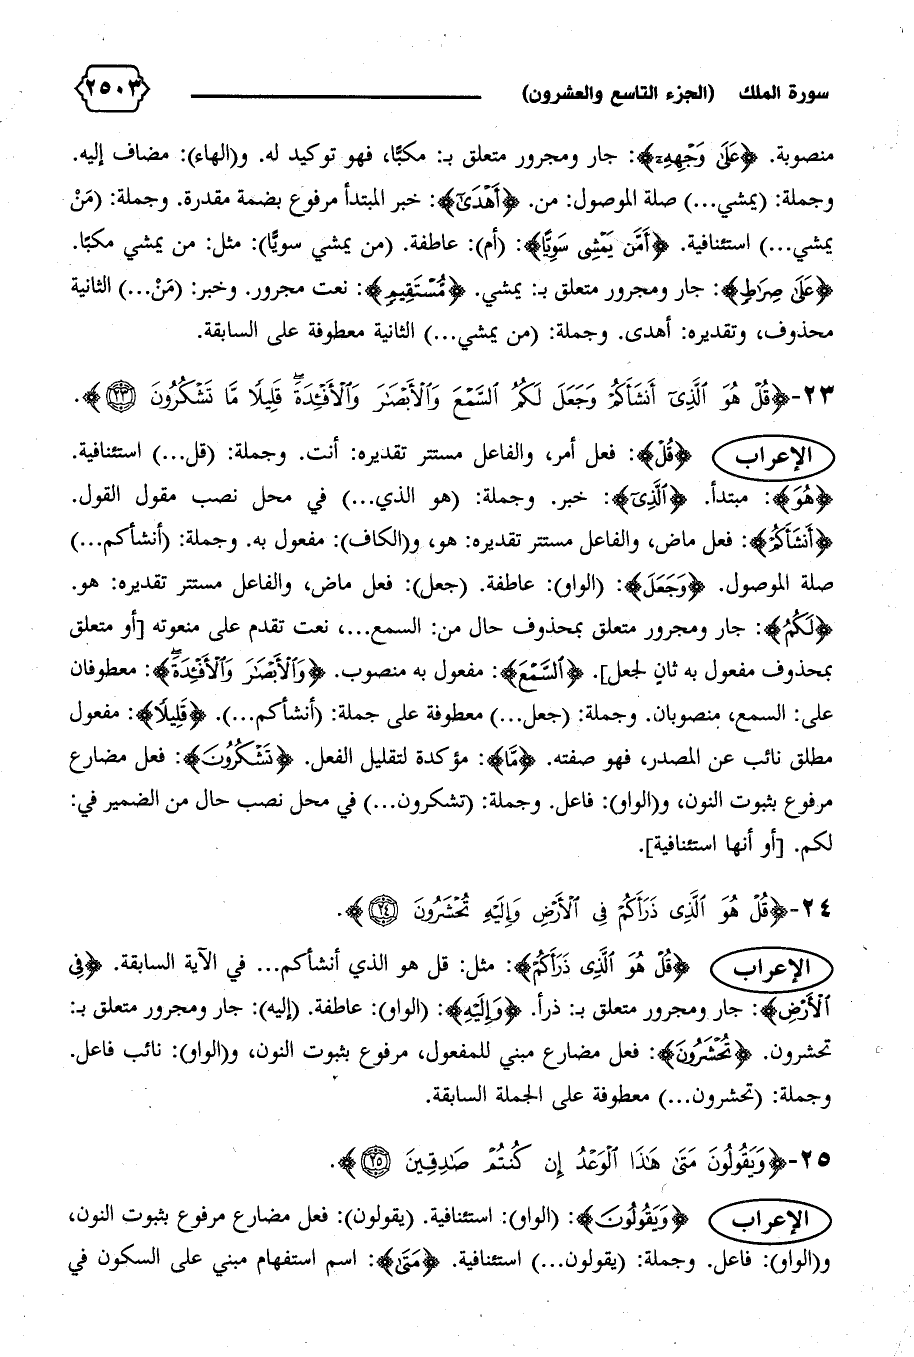 سورة الملك (الجزء التاسع والعشرون) ٢٥٠٣
منصوبة. ﴿عَلَىٰ وَجْهِهِۦٓ﴾: جار ومجرور متعلق بـ: مكبًّا، فهو توكيد له. و(الهاء): مضاف إليه.
وجملة: (يمشي...) صلة الموصول: من. ﴿أَهْدَىٰٓ﴾: خبر المبتدأ مرفوع بضمة مقدرة. وجملة: (مَنْ
يمشي...) استئنافية. ﴿أَمَّن يَمْشِى سَوِيًّا﴾: (أم): عاطفة. (من يمشي سويًّا): مثل: من يمشي مكبًّا.
﴿عَلَىٰ صِرَٰطٍ﴾: جار ومجرور متعلق بـ: يمشي. ﴿مُّسْتَقِيمٍ﴾: نعت مجرور. وخبر: (مَنْ...) الثانية
محذوف، وتقديره: أهدى. وجملة: (من يمشي...) الثانية معطوفة على السابقة.
٢٣-﴿قُلْ هُوَ ٱلَّذِىٓ أَنشَأَكُمْ وَجَعَلَ لَكُمُ ٱلسَّمْعَ وَٱلْأَبْصَٰرَ وَٱلْأَفْـِٔدَةَ ۖ قَلِيلًا مَّا تَشْكُرُونَ ٢٣﴾.
الإعراب ﴿قُلْ﴾: فعل أمر، والفاعل مستتر تقديره: أنت. وجملة: (قل...) استئنافية.
﴿هُوَ﴾: مبتدأ. ﴿ٱلَّذِىٓ﴾: خبر. وجملة: (هو الذي...) في محل نصب مقول القول.
﴿أَنشَأَكُمْ﴾: فعل ماض، والفاعل مستتر تقديره: هو، و(الكاف): مفعول به. وجملة: (أنشأكم...)
صلة الموصول. ﴿وَجَعَلَ﴾: (الواو): عاطفة. (جعل): فعل ماض، والفاعل مستتر تقديره: هو.
﴿لَكُمُ﴾: جار ومجرور متعلق بمحذوف حال من: السمع...، نعت تقدم على منعوته [أو متعلق
بمحذوف مفعول به ثانٍ لجعل]. ﴿ٱلسَّمْعَ﴾: مفعول به منصوب. ﴿وَٱلْأَبْصَٰرَ وَٱلْأَفْـِٔدَةَ ۖ﴾: معطوفان
على: السمع، منصوبان. وجملة: (جعل...) معطوفة على جملة: (أنشأكم...). ﴿قَلِيلًا﴾: مفعول
مطلق نائب عن المصدر، فهو صفته. ﴿مَّا﴾: مؤكدة لتقليل الفعل. ﴿تَشْكُرُونَ﴾: فعل مضارع
مرفوع بثبوت النون، و(الواو): فاعل. وجملة: (تشكرون...) في محل نصب حال من الضمير في:
لكم. [أو أنها استئنافية].
٢٤-﴿قُلْ هُوَ ٱلَّذِى ذَرَأَكُمْ فِى ٱلْأَرْضِ وَإِلَيْهِ تُحْشَرُونَ ٢٤﴾.
الإعراب ﴿قُلْ هُوَ ٱلَّذِى ذَرَأَكُمْ﴾: مثل: قل هو الذي أنشأكم... في الآية السابقة. ﴿فِى
ٱلْأَرْضِ﴾: جار ومجرور متعلق بـ: ذرأ. ﴿وَإِلَيْهِ﴾: (الواو): عاطفة. (إليه): جار ومجرور متعلق بـ:
تحشرون. ﴿تُحْشَرُونَ﴾: فعل مضارع مبني للمفعول، مرفوع بثبوت النون، و(الواو): نائب فاعل.
وجملة: (تحشرون...) معطوفة على الجملة السابقة.
٢٥-﴿وَيَقُولُونَ مَتَىٰ هَٰذَا ٱلْوَعْدُ إِن كُنتُمْ صَٰدِقِينَ ٢٥﴾.
الإعراب ﴿وَيَقُولُونَ﴾: (الواو): استئنافية. (يقولون): فعل مضارع مرفوع بثبوت النون،
و(الواو): فاعل. وجملة: (يقولون...) استئنافية. ﴿مَتَىٰ﴾: اسم استفهام مبني على السكون في